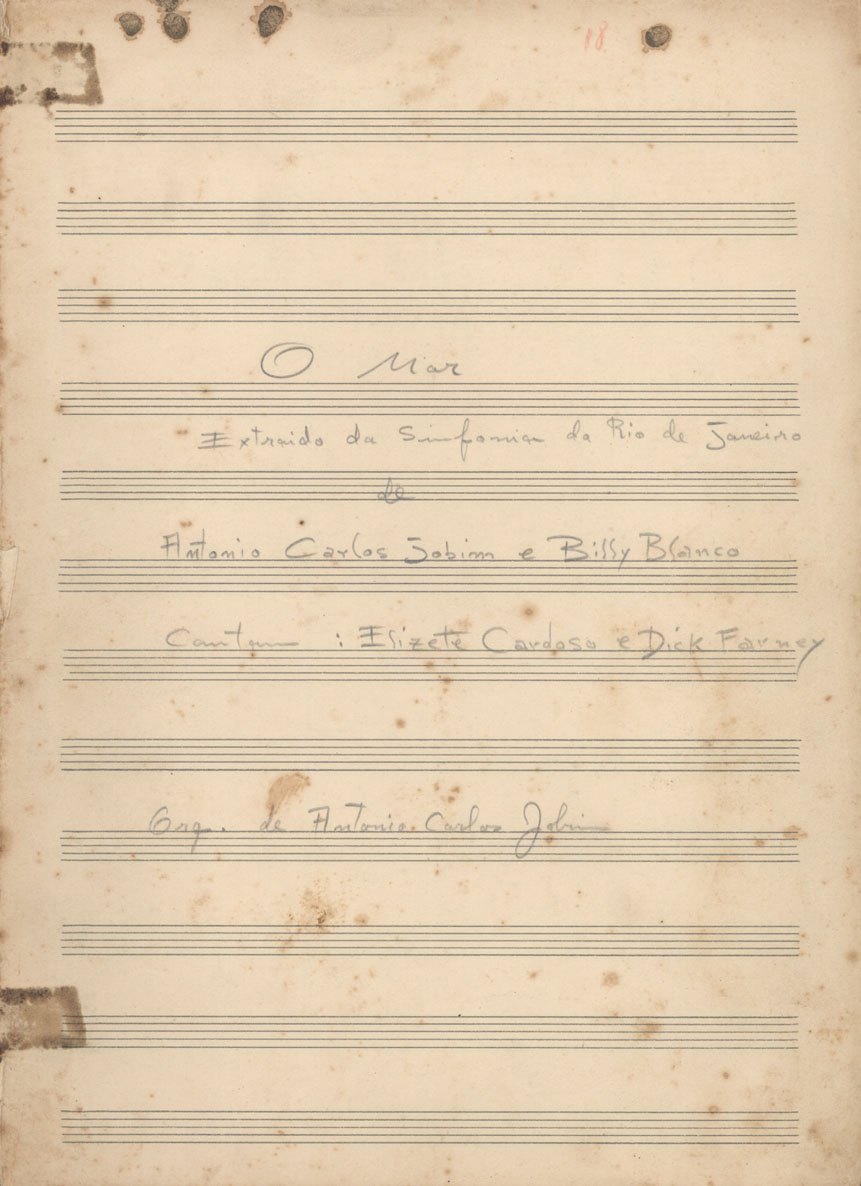 18
O Mar
Extraido da Sinfonia da Rio de Janeiro
de
Antonio Carlos Jobim e Billy Blanco
Cantam : Elizete Cardoso e Dick Farney
Orq. de Antonio Carlos Jobim